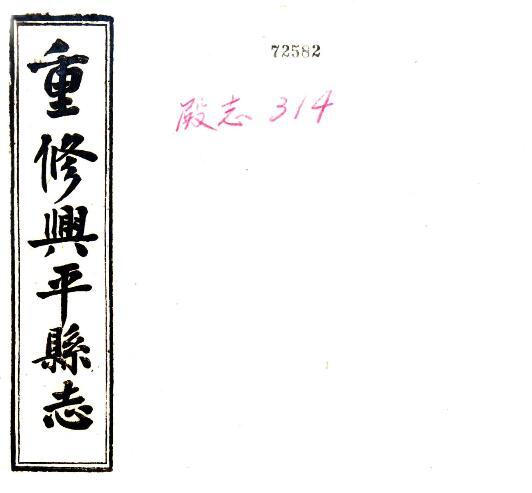 重修興平縣志
72582
殿志 314